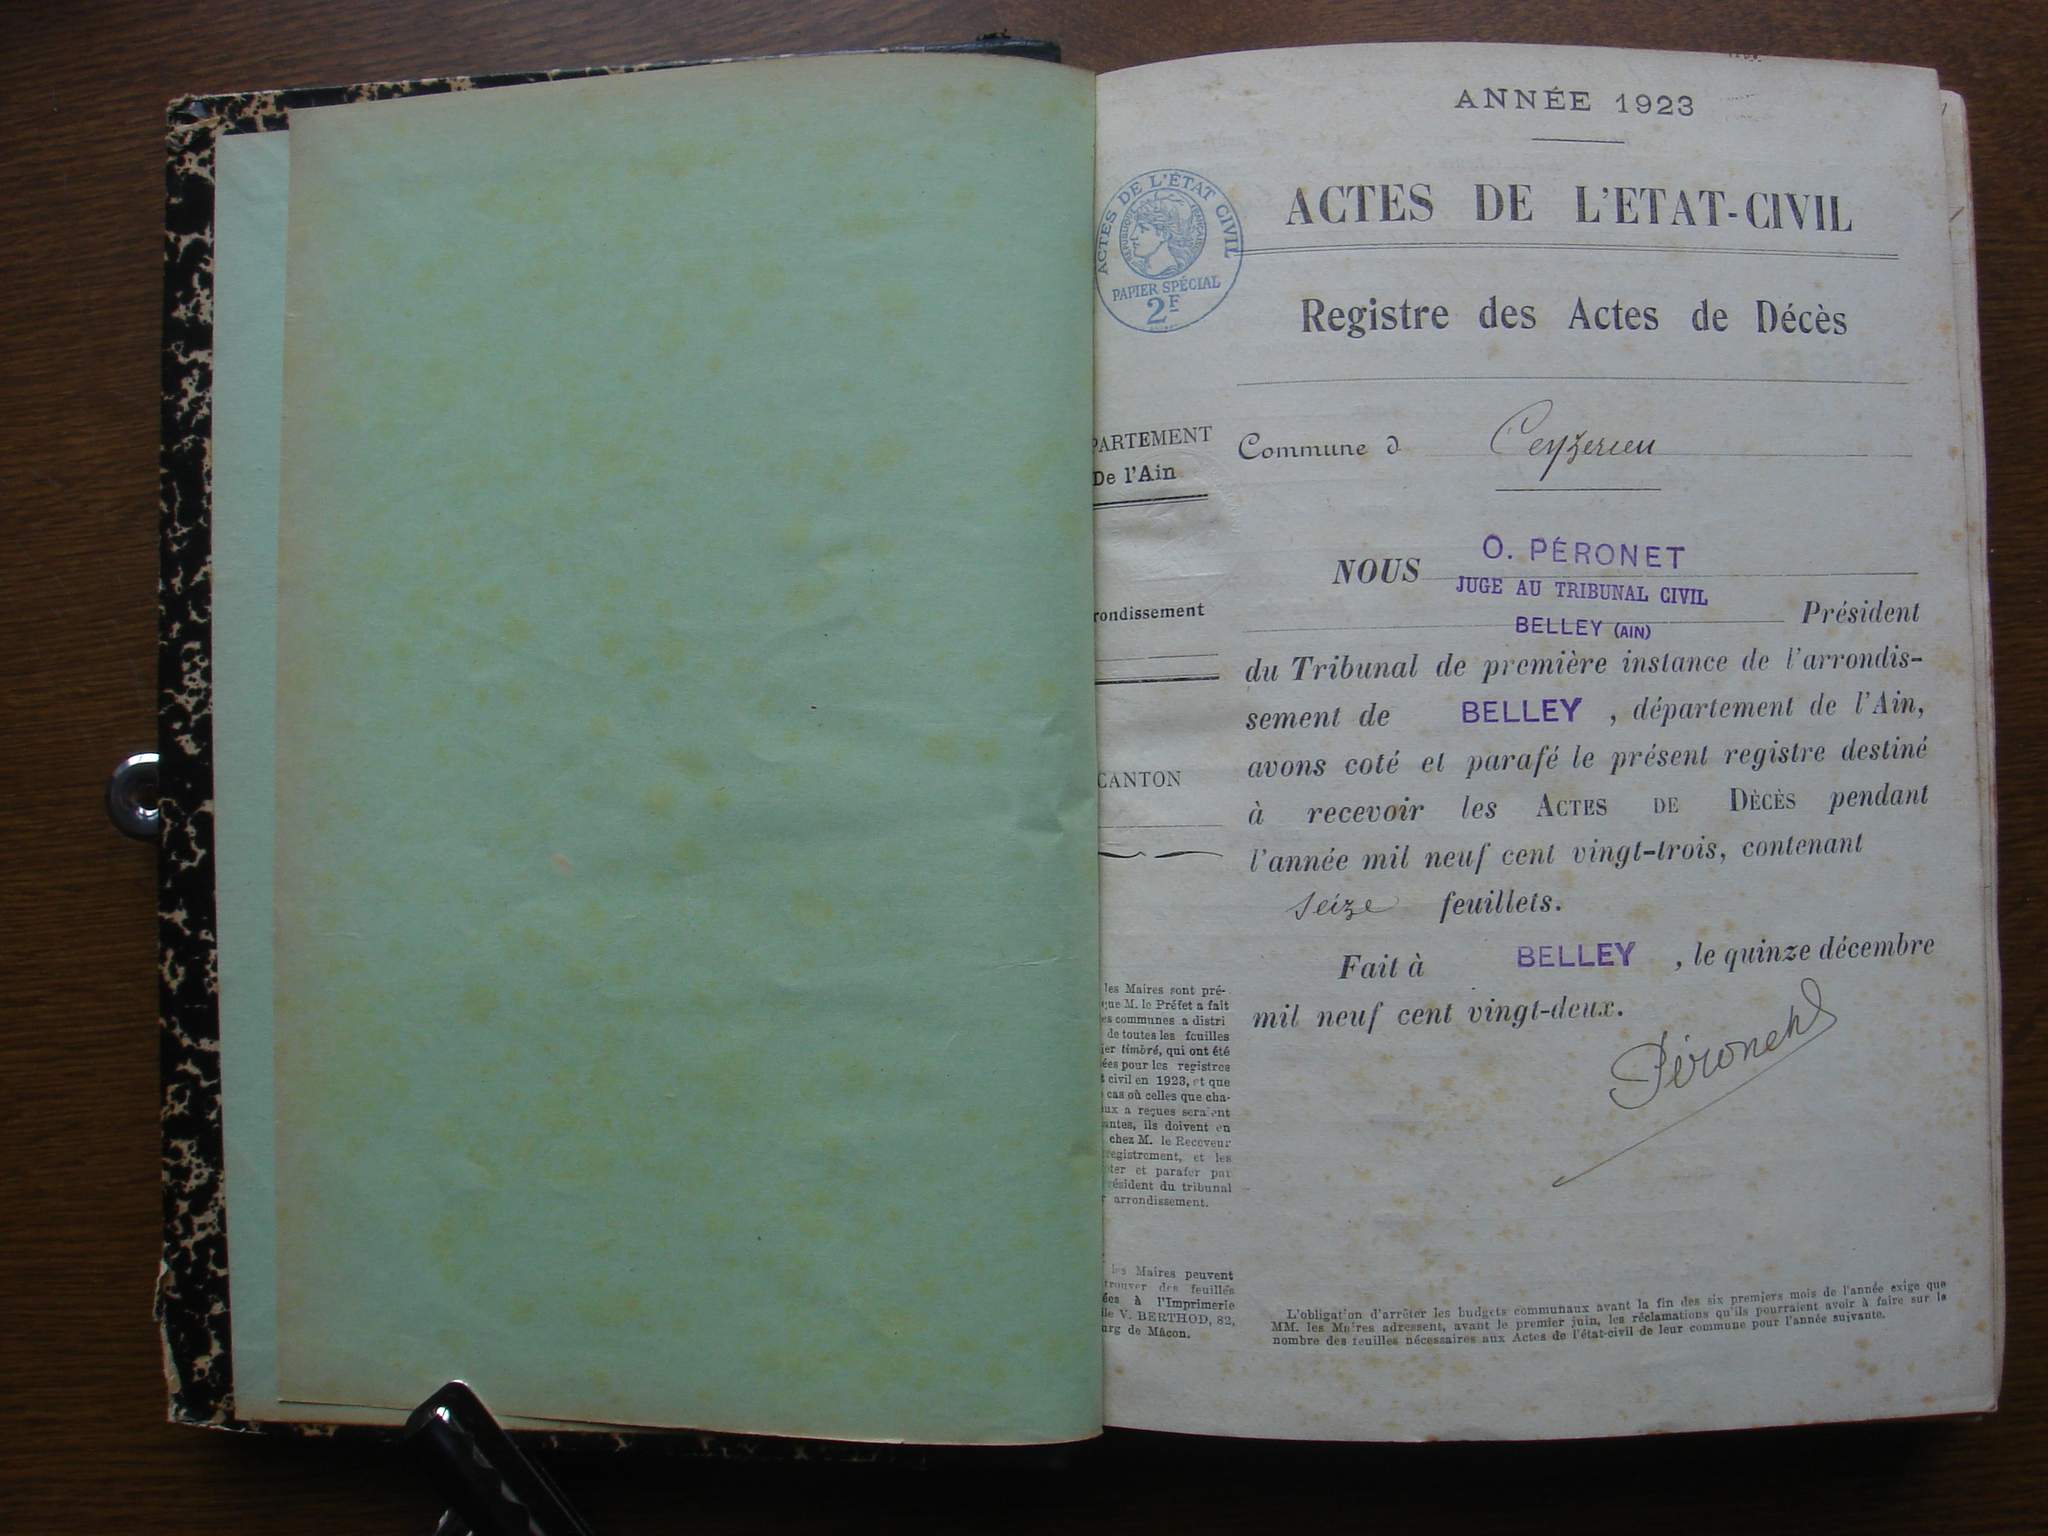 ANNÉE 1923
ACTES DE L'ETAT-CIVIL
ACTES DE L'ÉTAT CIVIL
RÉPUBLIQUE FRANÇAISE
PAPIER SPÉCIAL
2F
Registre des Actes de Décès
PARTEMENT
De l'Ain
Commune d Ceyzerieu
NOUS O. PÉRONET
JUGE AU TRIBUNAL CIVIL
BELLEY (AIN)
Président
rondissement
du Tribunal de première instance de l'arrondis-
sement de BELLEY, département de l'Ain,
avons coté et parafé le présent registre destiné
CANTON
à recevoir les ACTES DE DÈCÈS pendant
l'année mil neuf cent vingt-trois, contenant
seize feuillets.
Fait à BELLEY, le quinze décembre
mil neuf cent vingt-deux.
Péronet
les Maires sont pré-
que M. le Préfet a fait
es communes a distri
de toutes les feuilles
ier timbré, qui ont été
ées pour les registres
t civil en 1923, et que
cas où celles que cha-
ux a reçues seraient
antes, ils doivent en
chez M. le Receveur
registrement, et les
oter et parafer par
résident du tribunal
r arrondissement.
les Maires peuvent
trouver des feuilles
ées à l'Imprimerie
lle V. BERTHOD, 82,
urg de Mâcon.
L'obligation d'arrêter les budgets communaux avant la fin des six premiers mois de l'année exige que
MM. les Maires adressent, avant le premier juin, les réclamations qu'ils pourraient avoir à faire sur le
nombre des feuilles nécessaires aux Actes de l'état-civil de leur commune pour l'année suivante.